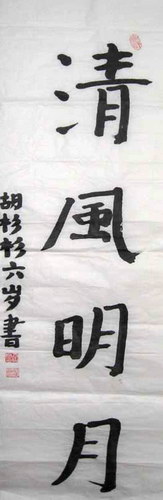 清風明月
胡杉杉六岁書